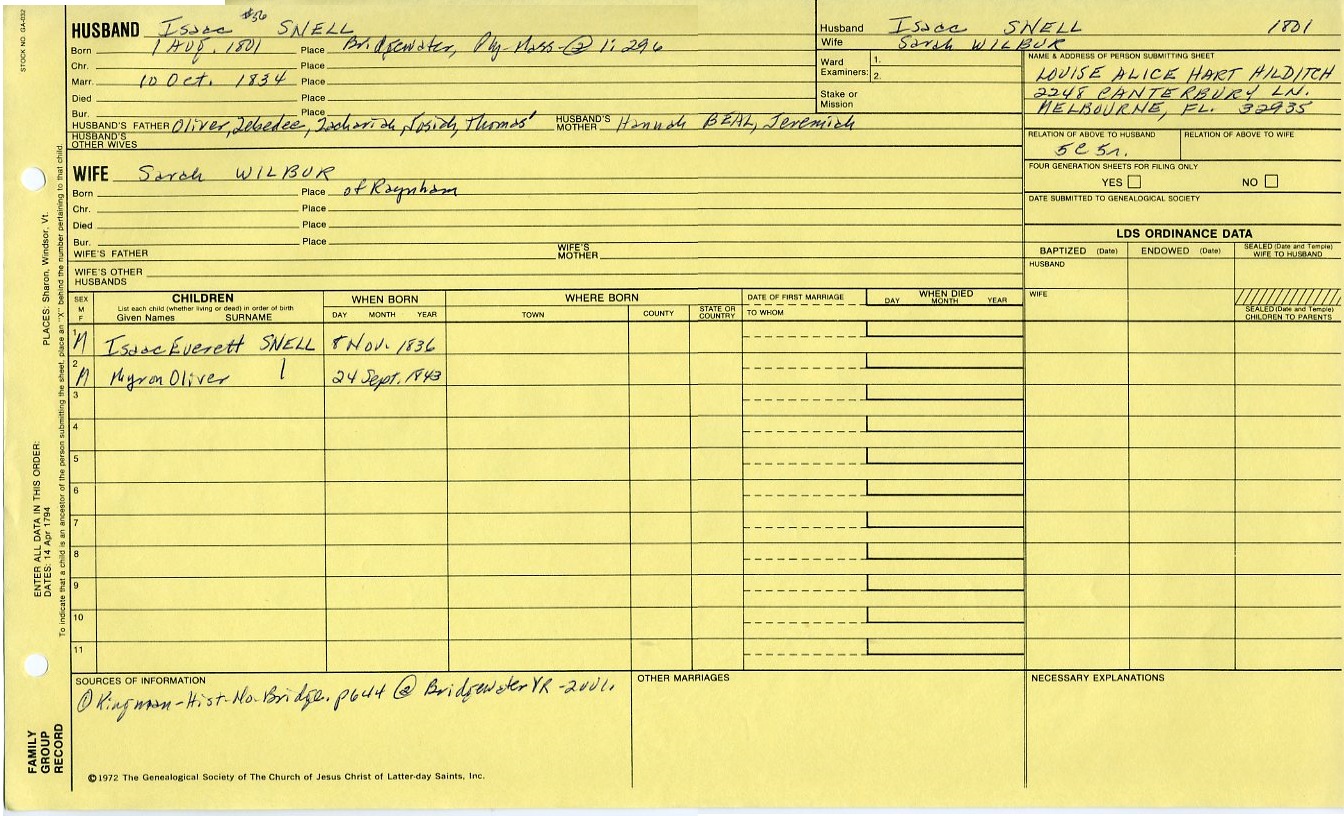 STOCK NO. GA-032
#36
HUSBAND Isaac SNELL
Born 1 Aug. 1801 Place Bridgewater, Ply-Mass-② 1:296
Chr. Place
Marr. 10 Oct. 1834 Place
Died Place
Bur. Place
HUSBAND'S FATHER Oliver, Zebedee, Zachariah, Josiah, Thomas' HUSBAND'S MOTHER Hannah BEAL, Jeremiah
HUSBAND'S OTHER WIVES
WIFE Sarah WILBUR
Born Place of Raynham
Chr. Place
Died Place
Bur. Place
WIFE'S FATHER WIFE'S MOTHER
WIFE'S OTHER HUSBANDS
Husband Isaac SNELL 1801
Wife Sarah WILBUR
Ward Examiners: 1.
2.
Stake or Mission
NAME & ADDRESS OF PERSON SUBMITTING SHEET
LOUISE ALICE HART HILDITCH
2248 CANTERBURY LN.
MELBOURNE, FL. 32935
RELATION OF ABOVE TO HUSBAND RELATION OF ABOVE TO WIFE
5C 5r.
FOUR GENERATION SHEETS FOR FILING ONLY
YES NO
DATE SUBMITTED TO GENEALOGICAL SOCIETY
LDS ORDINANCE DATA
BAPTIZED (Date) ENDOWED (Date) SEALED (Date and Temple) WIFE TO HUSBAND
HUSBAND
WIFE
SEALED (Date and Temple) CHILDREN TO PARENTS
SEX M F
CHILDREN
List each child (whether living or dead) in order of birth
Given Names SURNAME
WHEN BORN
DAY MONTH YEAR
WHERE BORN
TOWN COUNTY STATE OR COUNTRY
DATE OF FIRST MARRIAGE
TO WHOM
WHEN DIED
DAY MONTH YEAR
1 M Isaac Everett SNELL 8 Nov. 1836
2 M Myron Oliver 24 Sept. 1843
3
4
5
6
7
8
9
10
11
SOURCES OF INFORMATION
① Kingman-Hist-No. Bridge. p644 ② Bridgewater VR -2vol.
OTHER MARRIAGES
NECESSARY EXPLANATIONS
©1972 The Genealogical Society of The Church of Jesus Christ of Latter-day Saints, Inc.
FAMILY GROUP RECORD
ENTER ALL DATA IN THIS ORDER:
DATES: 14 Apr 1794 PLACES: Sharon, Windsor, Vt.
To indicate that a child is an ancestor of the person submitting the sheet, place an "X" behind the number pertaining to that child.